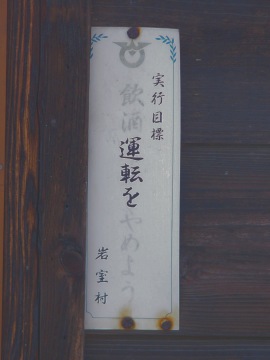 実行目標
飲酒運転をやめよう
岩室村